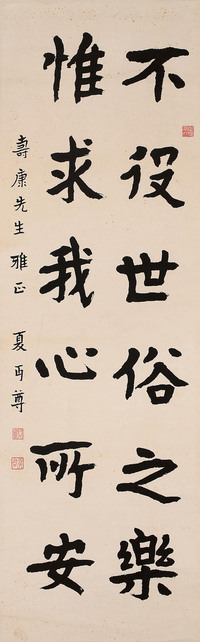 不役世俗之樂
惟求我心所安
壽康先生 雅正 夏丏尊